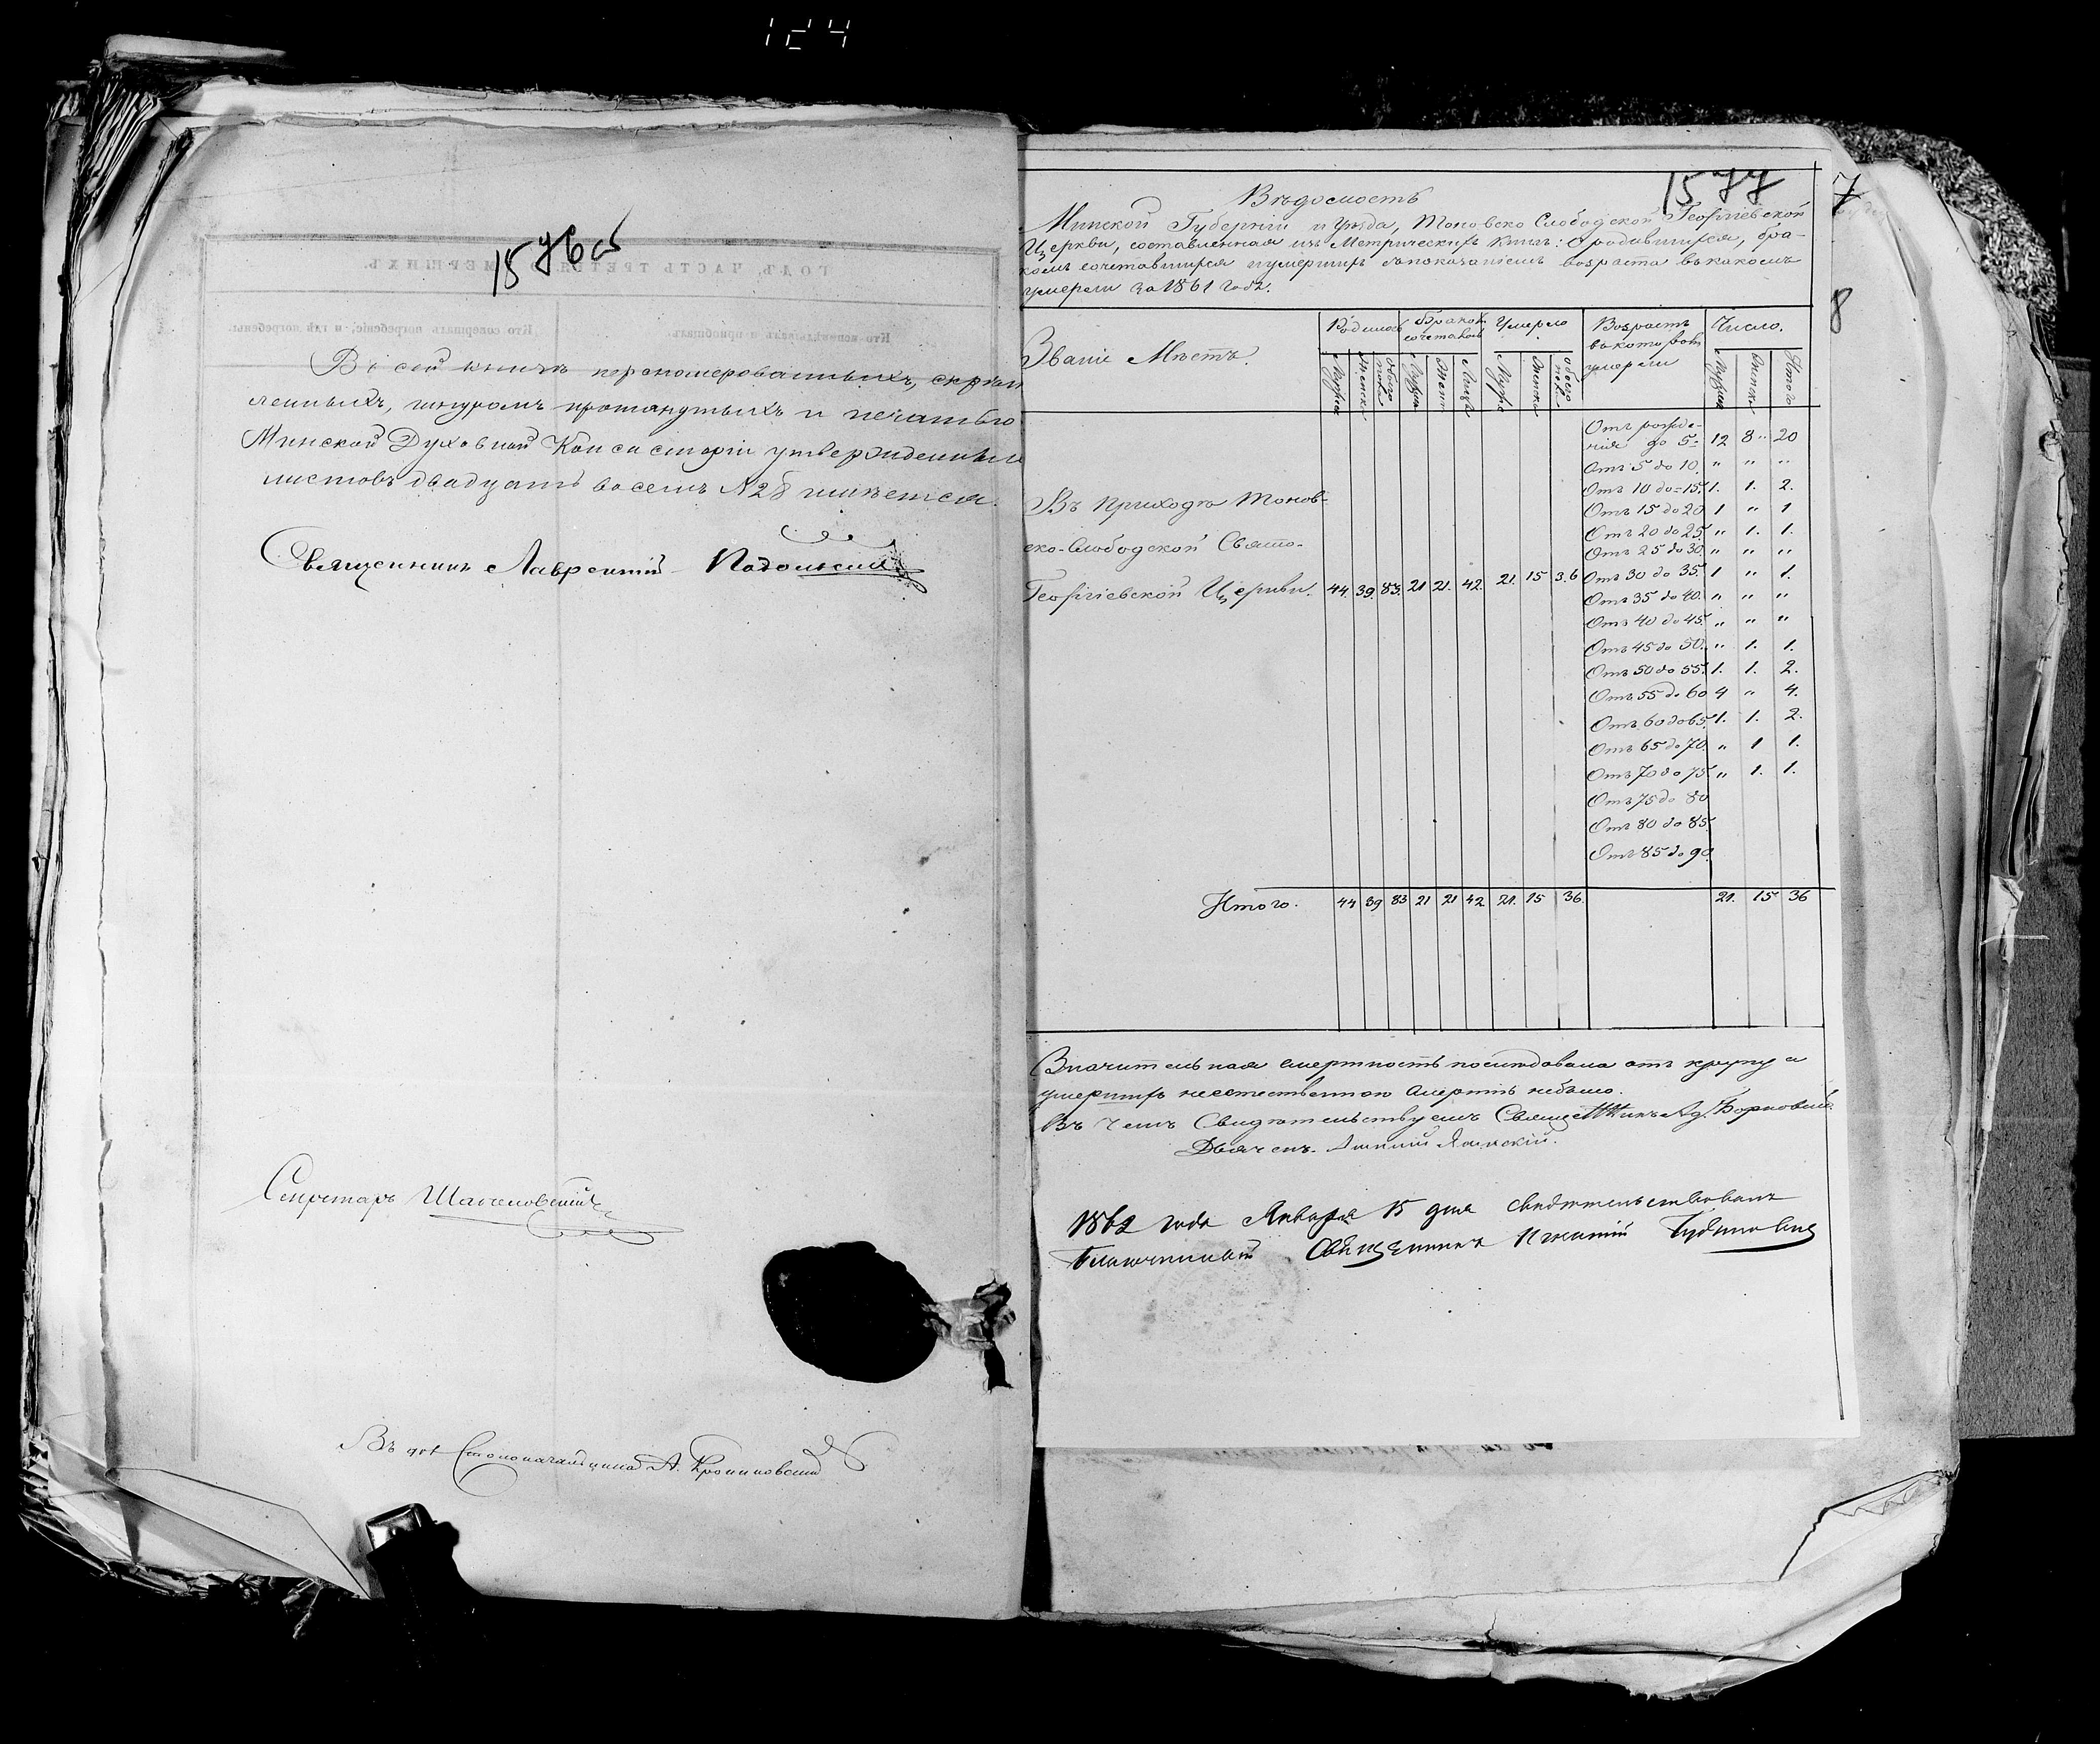 124
1576об
Въ сей книгѣ перономерованныхъ, скрѣп
ленныхъ, шнуромъ протянутыхъ и печатью
Минской Духовной Консисторіи утвержденныхъ
листовъ двадцать восемь N 28 имѣется.
Священникъ Лаврентій Подольскій
Секретарь
Въ дол Столоначальника А.
1577
7
8
Вѣдомость
Минской Губерніи и Уѣзда, Тоновско Слободской Георгіевской
Церкви, составленная изъ Метрическихъ книгъ: о родившихся, бра-
комъ сочетавшихся и умершихъ съ показаніемъ возраста въ какомъ
умерли за 1861 годъ.
Званіе Мѣстъ. Родилось Бракомъ сочеталось Умерло Возрастъ въ которомъ умерли Число.
Мужск Женск Обоего пола Мужск Женск Лицъ Мужск Женск Обоего пола Мужск Женск Итого
Отъ рожде-
нія до 5 12 8 " 20
Отъ 5 до 10. " " "
Отъ 10 до 15. 1. 1. 2.
Въ приходѣ Тонов-
Отъ 15 до 20 1 " 1
Отъ 20 до 25. " 1. 1.
ско-Слободской Свято-
Отъ 25 до 30. " " "
Георгіевской Церкви. 44. 39. 83. 21 21. 42. 21. 15 3.6 Отъ 30 до 35. 1 " 1.
Отъ 35 до 40. " " "
Отъ 40 до 45. " " "
Отъ 45 до 50. " 1. 1.
Отъ 50 до 55. 1. 1. 2.
Отъ 55 до 60 4 " 4.
Отъ 60 до 65. 1. 1. 2.
Отъ 65 до 70. " 1 1.
Отъ 70 до 75. " 1. 1.
Отъ 75 до 80
Отъ 80 до 85.
Отъ 85 до 90.
Итого. 44 39 83 21 21 42 21. 15 36. 21. 15 36
Значительная смертность послѣдовала отъ крупу а
умершихъ неестественною смертію небыло.
Въ чемъ Свидѣтельствуемъ Священникъ Ад.
Дьячекъ
1862 года Января 15 дня свидѣтельствовалъ
Благочинный Священникъ Игнатій